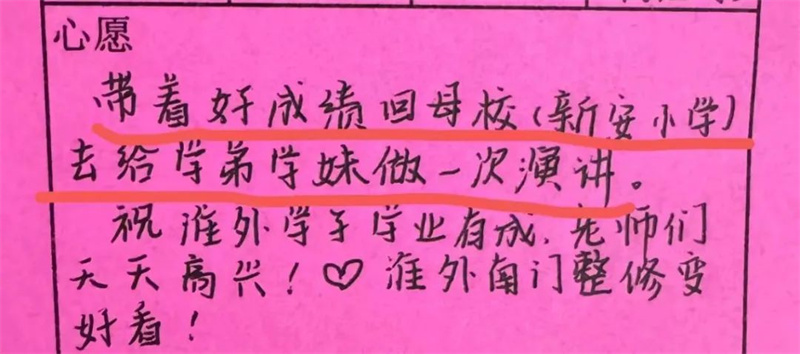 心愿
带着好成绩回母校(新安小学)
去给学弟学妹做一次演讲。
祝淮外学子学业有成,老师们
天天高兴!♡ 淮外南门整修变
好看!